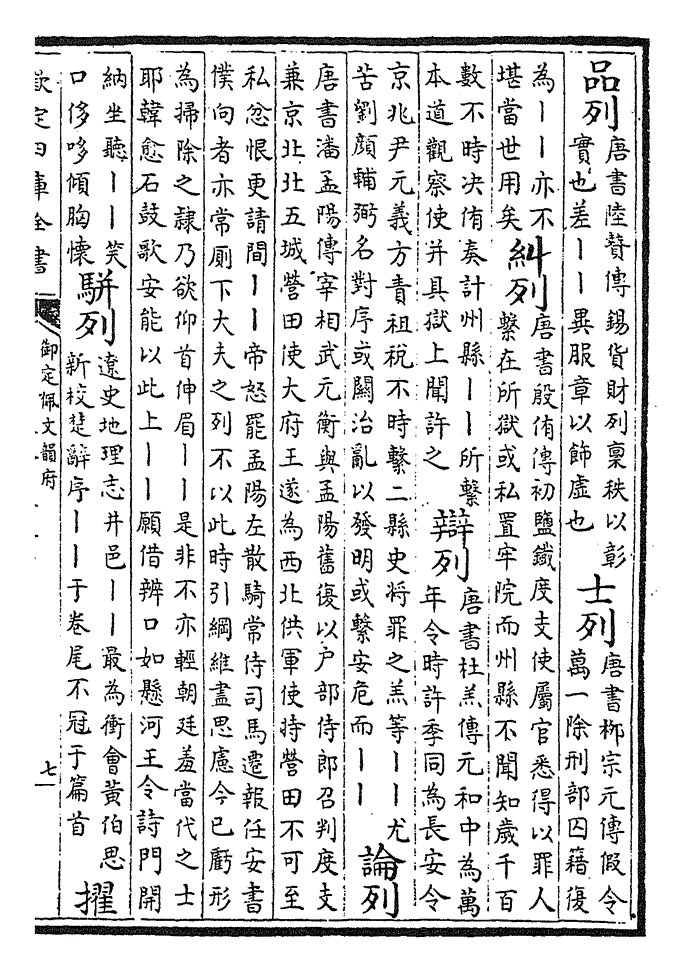 品列
唐書陸贄傳錫貨財列稟秩以彰
實也差丨丨異服章以飾虛也
士列
唐書柳宗元傳假令
萬一除刑部囚籍復
為丨丨亦不
堪當世用矣
糾列
唐書殷侑傳初鹽鐵度支使屬官悉得以罪人
繫在所獄或私置牢院而州縣不聞知歲千百
數不時决侑奏計州縣丨丨所繫
本道觀察使并具獄上聞許之
辯列
唐書杜羔傳元和中為萬
年令時許季同為長安令
京兆尹元義方責租稅不時繫二縣史將罪之羔等丨丨尤
苦劉顏輔弼名對序或關治亂以發明或繫安危而丨丨
論列
唐書潘孟陽傳宰相武元衡與孟陽舊復以户部侍郎召判度支
兼京北北五城營田使大府王遂為西北供軍使持營田不可至
私忿恨更請間丨丨帝怒罷孟陽左散騎常侍司馬遷報任安書
僕向者亦常厠下大夫之列不以此時引綱維盡思慮今已虧形
為掃除之隷乃欲仰首伸眉丨丨是非不亦輕朝廷羞當代之士
耶韓愈石鼓歌安能以此上丨丨願借辨口如懸河王令詩門開
納坐聽丨丨笑
口侈哆傾胸懷
駢列
遼史地理志井邑丨丨最為衝會黄伯思
新校楚辭序丨丨于卷尾不冠于篇首
擢
欽定四庫全書
御定佩文韻府
七一